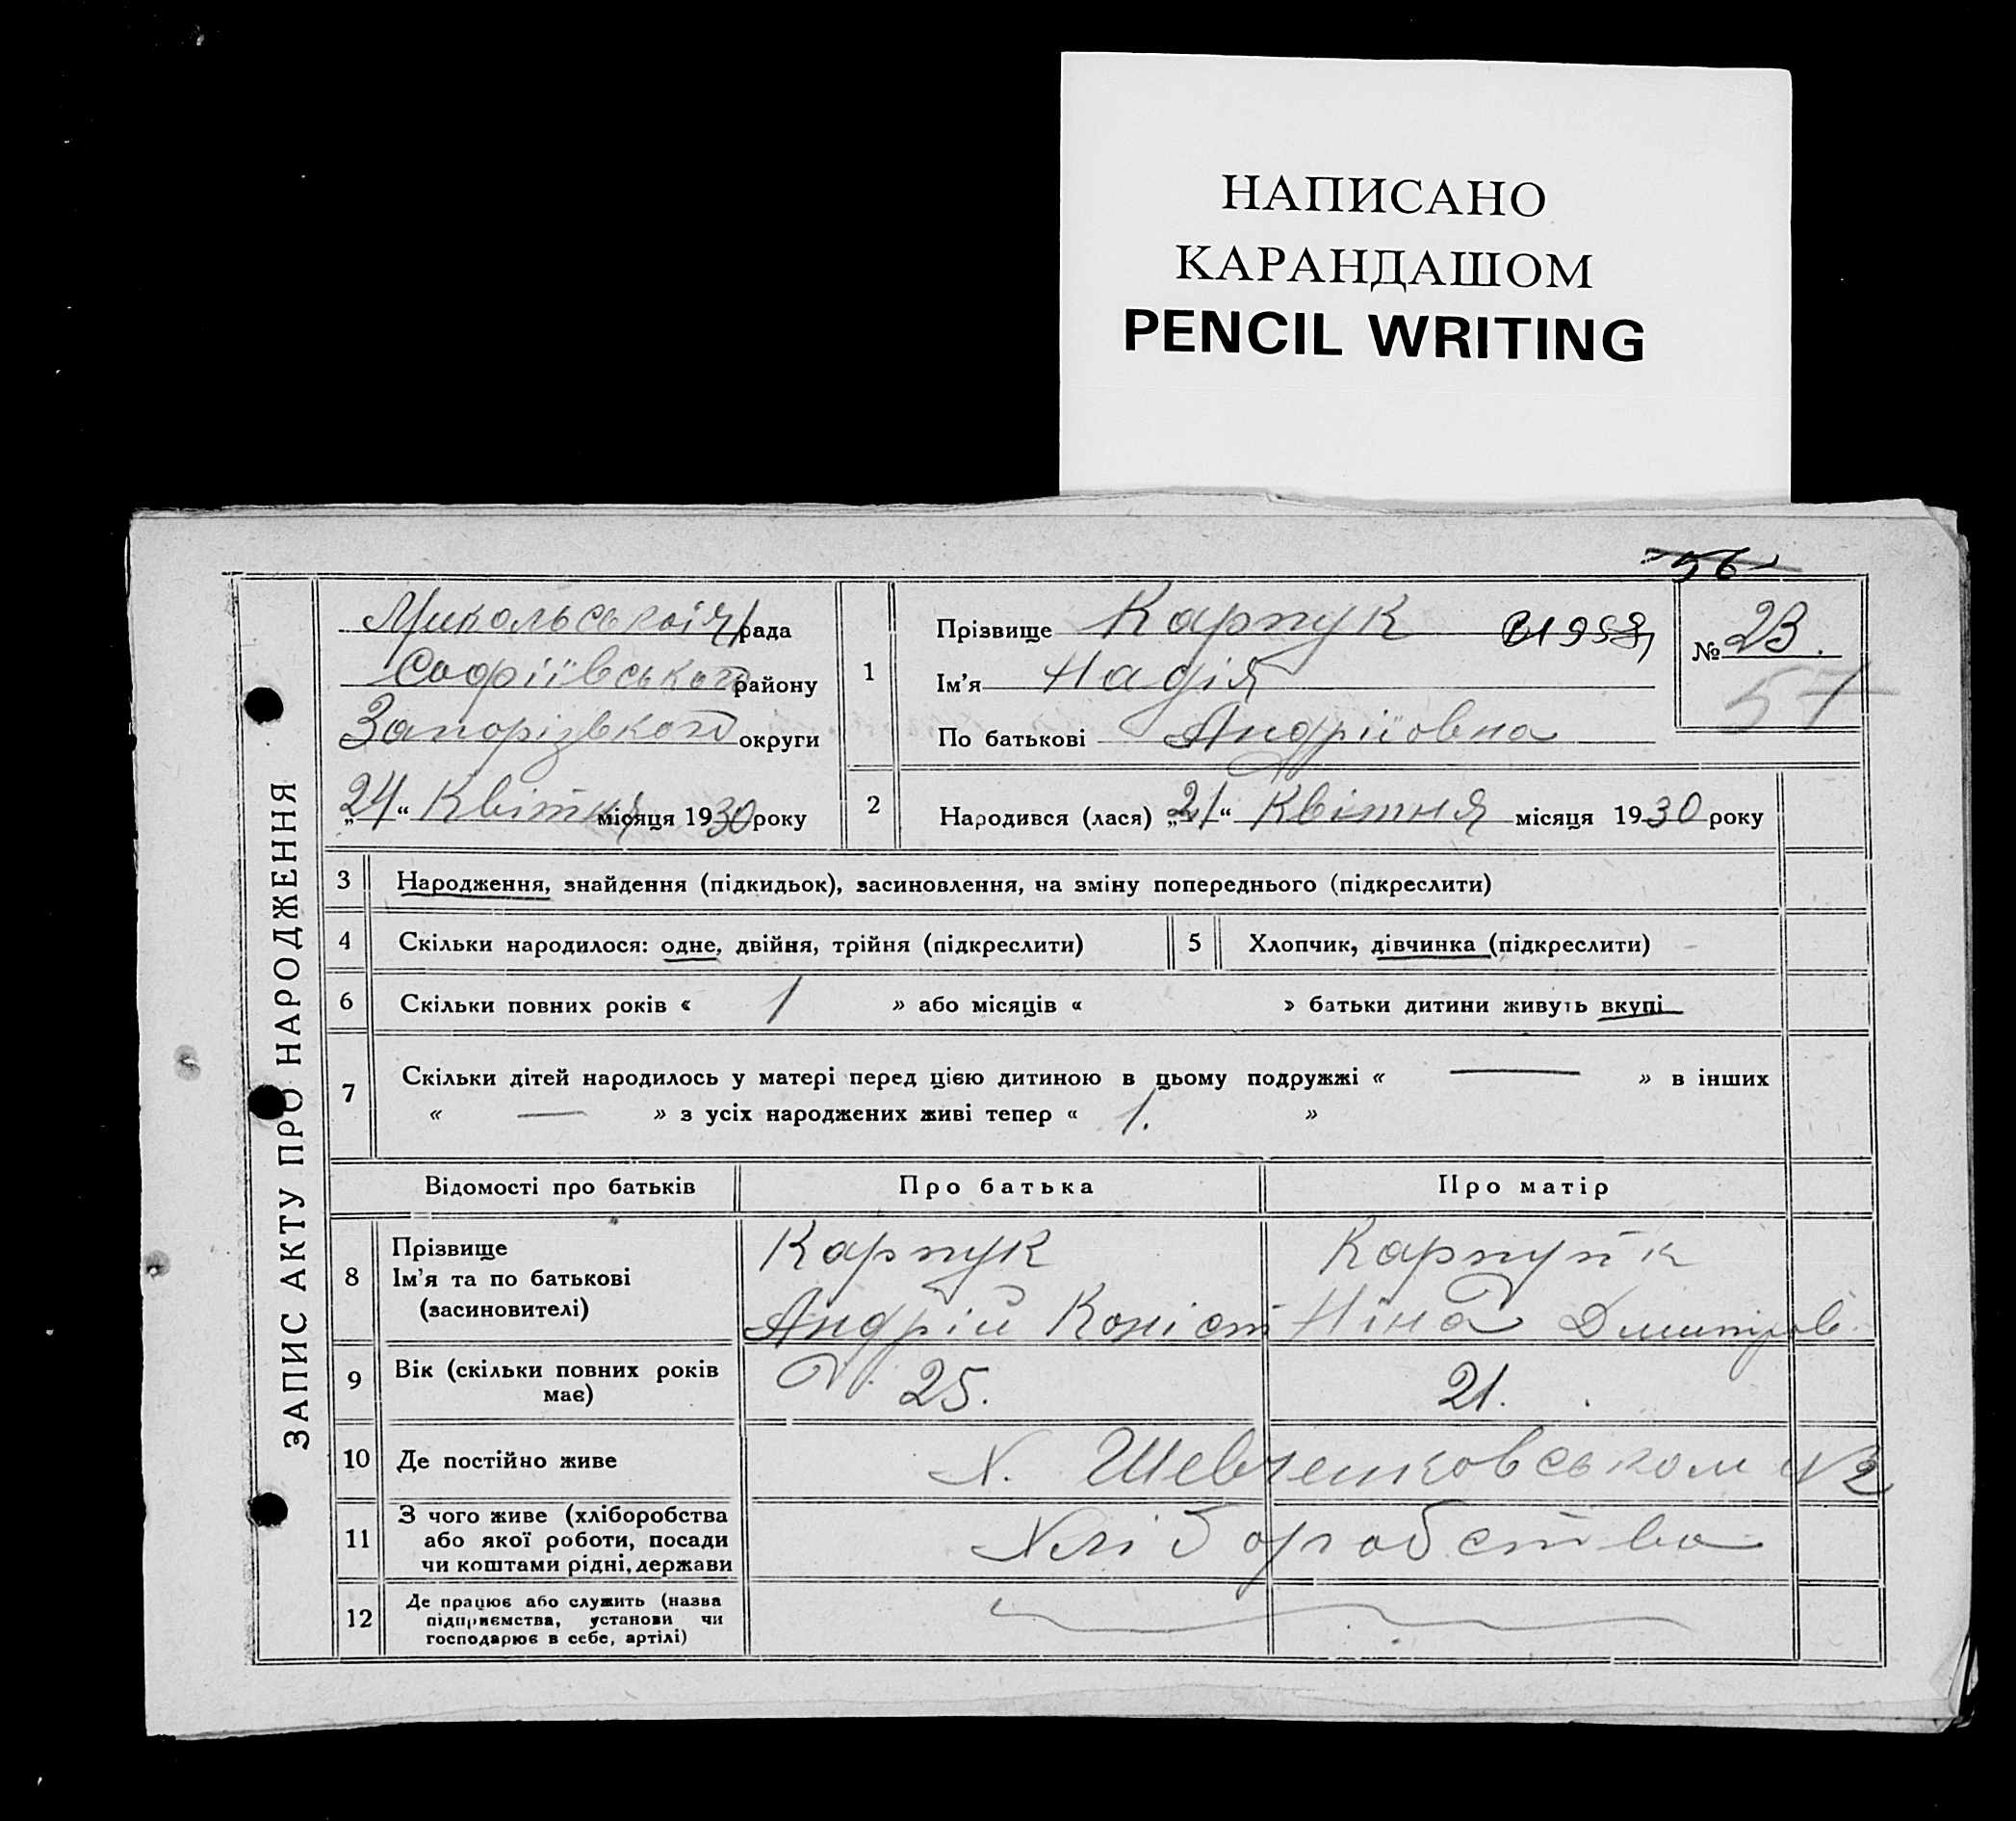 НАПИСАНО
КАРАНДАШОМ
PENCIL WRITING
56
ЗАПИС АКТУ ПРО НАРОДЖЕННЯ
рада
Софріївського району
Запорізького округи
„24“ Квітня місяця 1930 року
1
Прізвище Карпук
Ім’я Надія
По батькові Андріївна
№ 23.
57
2
Народився (лася) „21“ Квітня місяця 1930 року
3 Народження, знайдення (підкидьок), засиновлення, на зміну попереднього (підкреслити)
4 Скільки народилося: одне, двійня, трійня (підкреслити)
5 Хлопчик, дівчинка (підкреслити)
6 Скільки повних років « 1 » або місяців « » батьки дитини живуть вкупі
7 Скільки дітей народилось у матері перед цією дитиною в цьому подружжі « — » в інших
« — » з усіх народжених живі тепер « 1. »
Відомості про батьків Про батька Про матір
8 Прізвище
Ім’я та по батькові
(засиновителі)
Карпук
Андрій Коніст
Карпук
Ніна Дмитров
9 Вік (скільки повних років
має)
25. 21.
10 Де постійно живе х. Шевченковськом
11 З чого живе (хліборобства
або якої роботи, посади
чи коштами рідні, держави
Хліборобство
12 Де працює або служить (назва
підприємства, установи чи
господарює в себе, артілі)